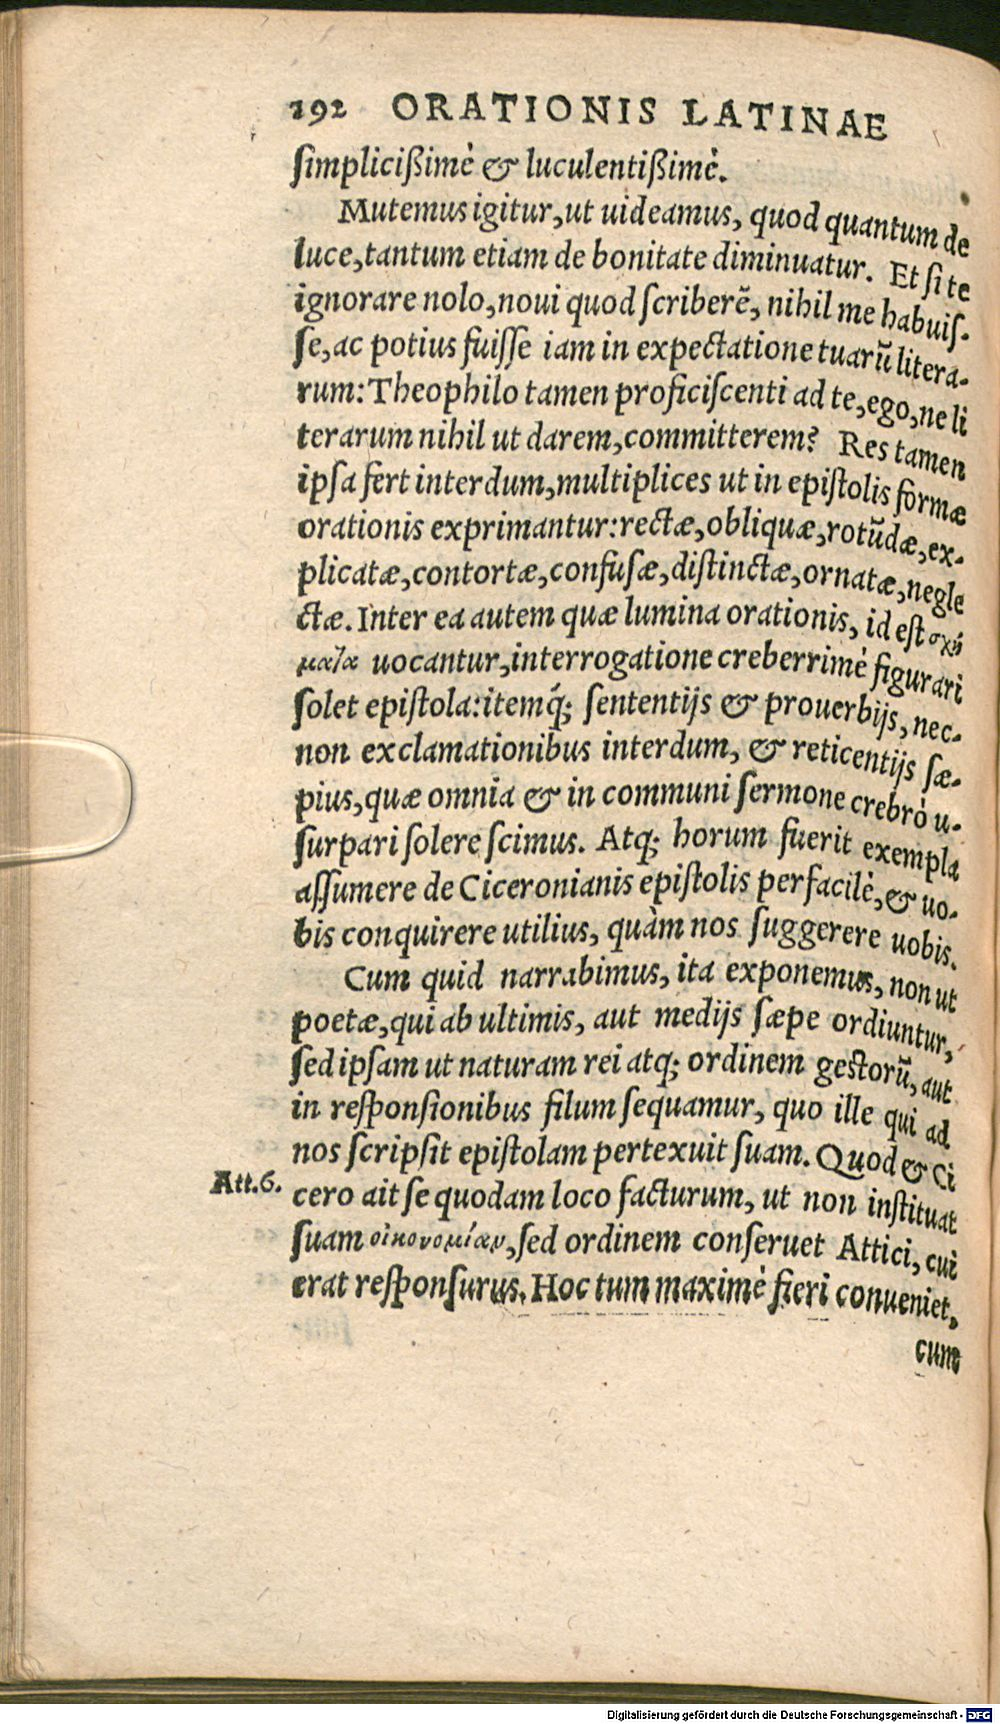 192 ORATIONIS LATINAE
ſimplicißimè & luculentißimè.
Mutemus igitur, ut uideamus, quod quantum de
luce, tantum etiam de bonitate diminuatur. Et ſi te
ignorare nolo, noui quod ſcriberẽ, nihil me habuiſ-
ſe, ac potius fuiſſe iam in expectatione tuarũ litera-
rum: Theophilo tamen proficiſcenti ad te, ego, ne li
terarum nihil ut darem, committerem? Res tamen
ipſa fert interdum, multiplices ut in epiſtolis formæ
orationis exprimantur: rectæ, obliquæ, rotũdæ, ex-
plicatæ, contortæ, confuſæ, diſtinctæ, ornatæ, negle
ctæ. Inter ea autem quæ lumina orationis, id eſt σχή
ματα uocantur, interrogatione creberrimè figurari
ſolet epiſtola: itemq́; ſententijs & prouerbijs, nec-
non exclamationibus interdum, & reticentijs ſæ-
pius, quæ omnia & in communi ſermone crebrò u-
ſurpari ſolere ſcimus. Atq; horum fuerit exempla
aſſumere de Ciceronianis epiſtolis perfacilè, & uo-
bis conquirere utilius, quàm nos ſuggerere uobis.
Cum quid narrabimus, ita exponemus, non ut
poetæ, qui ab ultimis, aut medijs ſæpe ordiuntur,
ſed ipſam ut naturam rei atq; ordinem geſtorũ, aut
in reſponſionibus filum ſequamur, quo ille qui ad
nos ſcripſit epiſtolam pertexuit ſuam. Quod & Ci
Att.6. cero ait ſe quodam loco facturum, ut non inſtituat
ſuam οἰκονομίαν, ſed ordinem conſeruet Attici, cui
erat reſponſurus. Hoc tum maximè fieri conueniet,
cum
Digitalisierung gefördert durch die Deutsche Forschungsgemeinschaft - DFG